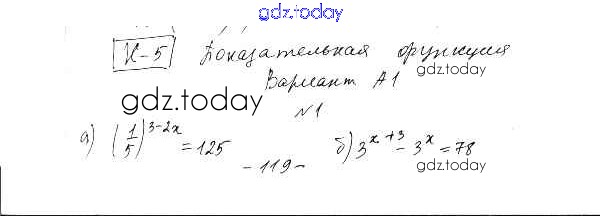 gdz.today
К-5 Показательная функция
gdz.today
Вариант А1
gdz.today
№1
а) (1/5)^(3-2x) = 125 б) 3^(x+3) - 3^x = 78
gdz.today
- 119 -